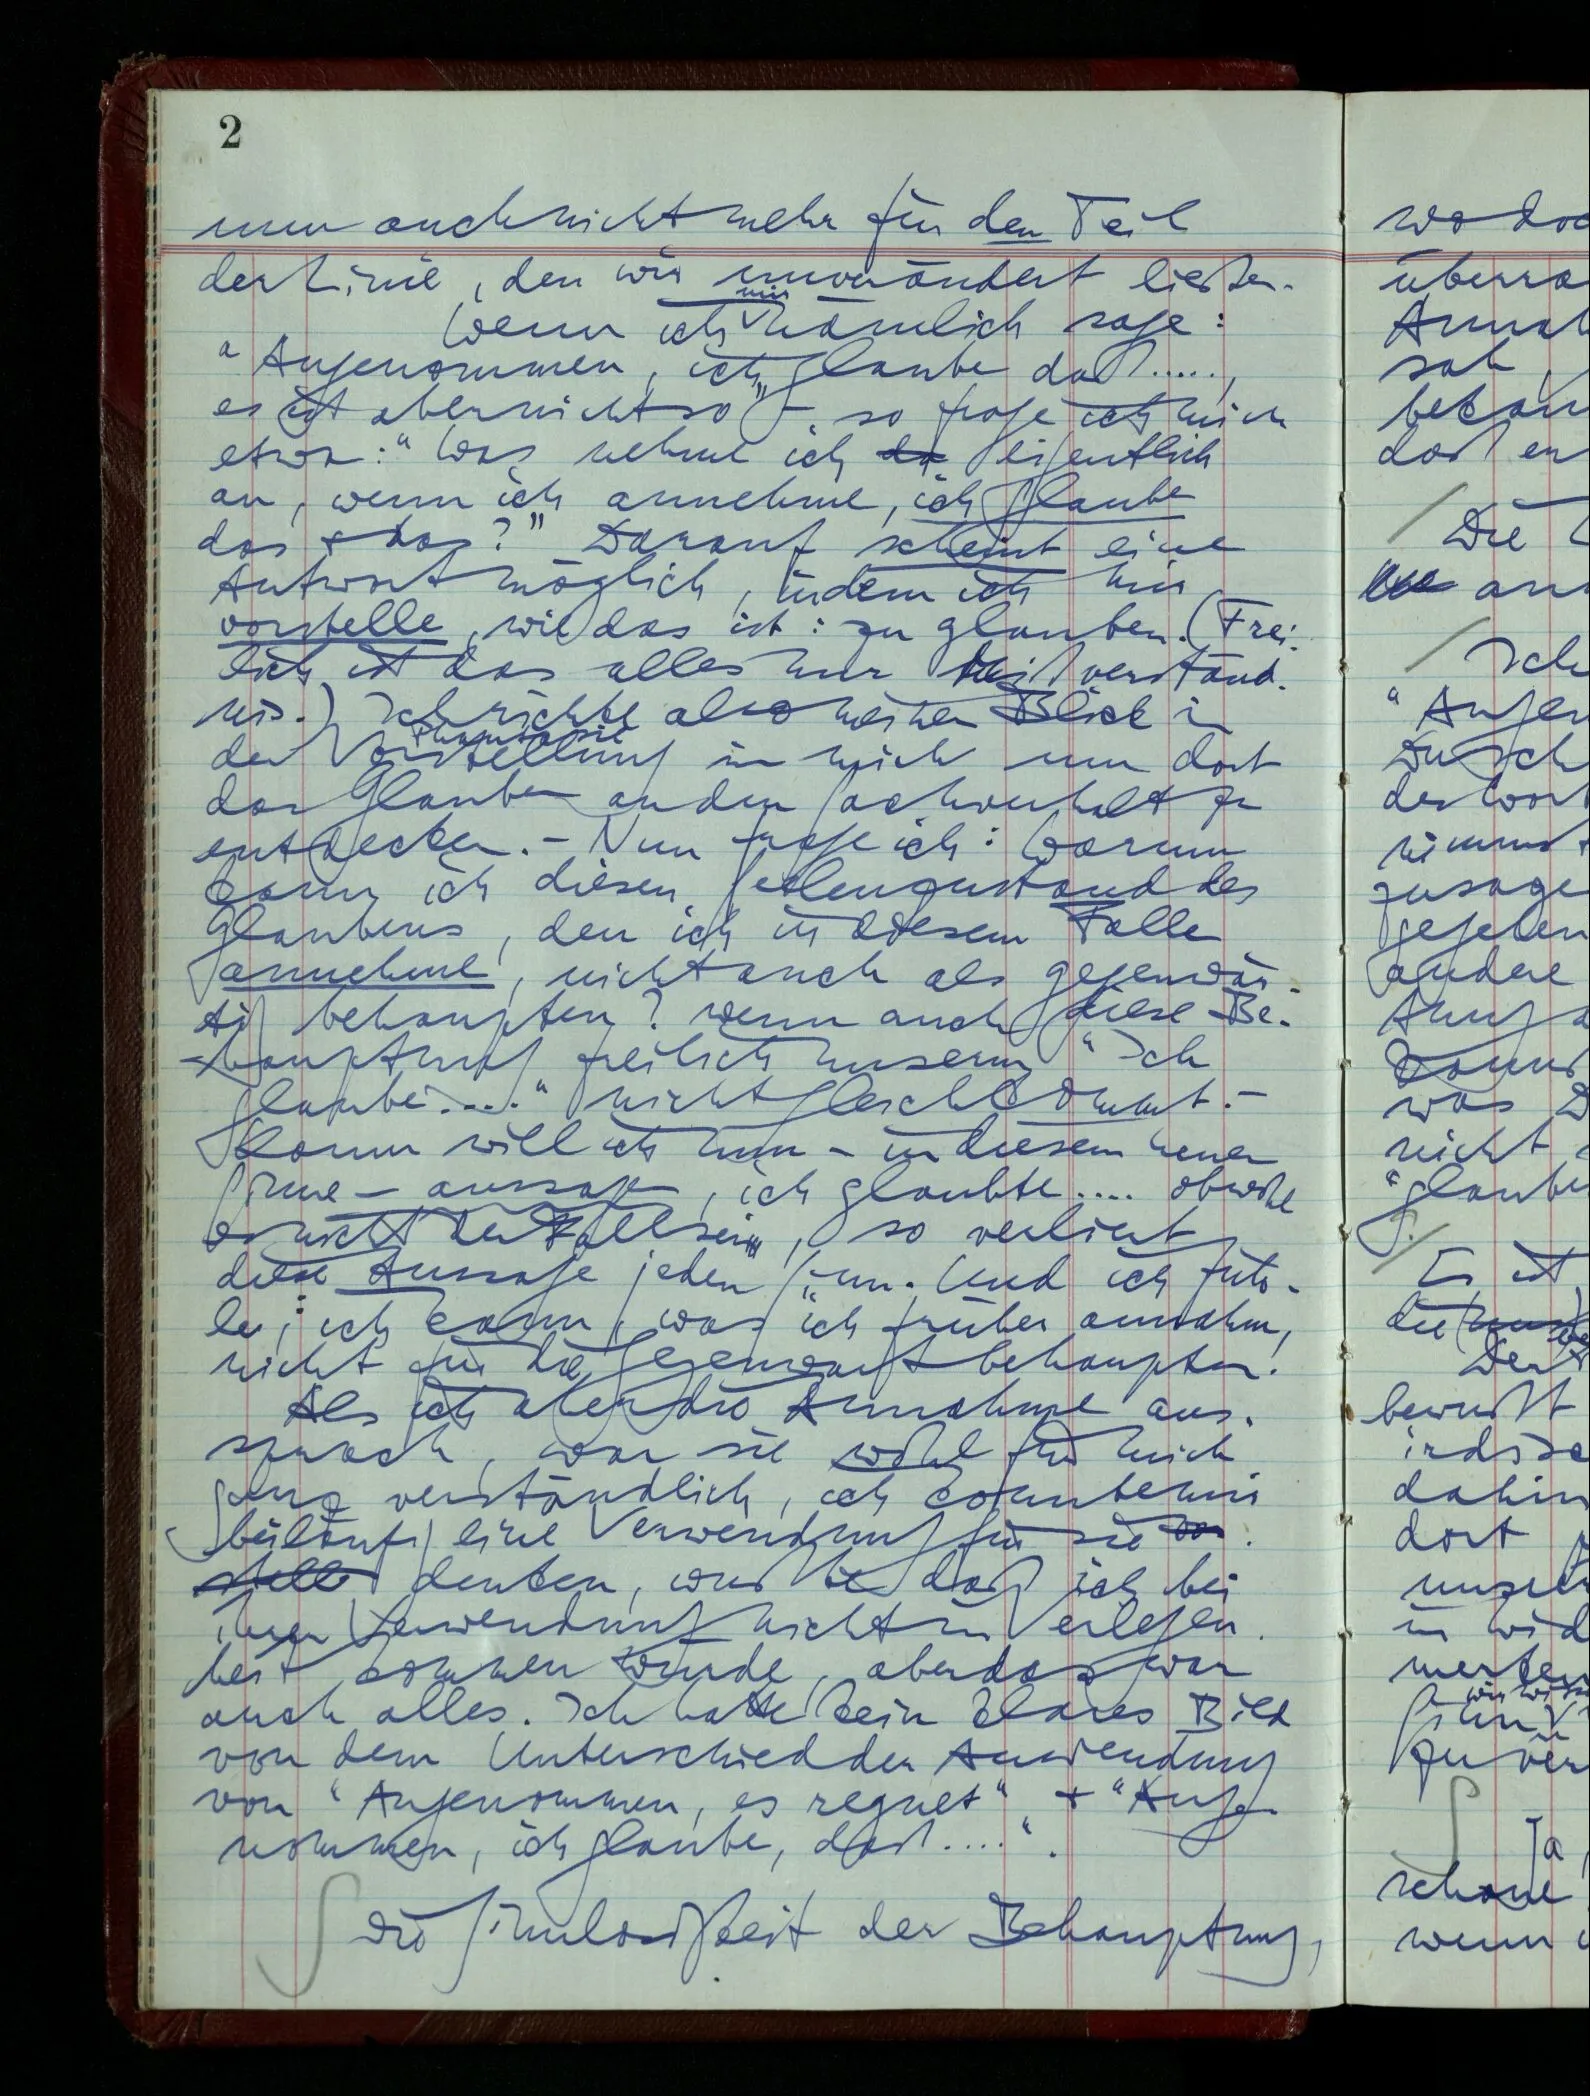 2
nun auch nicht mehr für den Teil
der Linie, den wir unverändert ließen.
Wenn ich mir nämlich sage:
"Angenommen, ich glaube daß.....,
es ist aber nicht so", – so frage ich mich
etwa: "Was nehme ich da eigentlich
an, wenn ich annehme, ich glaube
das + das?" Darauf scheint eine
Antwort möglich, indem ich mir
vorstelle, wie das ist: zu glauben. (Frei-
lich ist das alles nur Mißverständ-
nis.) Ich richte also meinen Blick in
der Vorstellung Phantasie in mich um dort
das Glauben an den Sachverhalt zu
entdecken. – Nun frage ich: Warum
kann ich diesen Seelenzustand des
Glaubens, den ich in diesem Falle
annehme, nicht auch als gegenwär-
tig behaupten? wenn auch diese Be-
hauptung freilich unserm "Ich
glaube....." nicht gleichkommt. –
Kann will ich nun – in diesem neuen
Sinne – aussagen, ich glaubte.... obwohl
es nicht der Fall sei, so verliert
diese Aussage jeden Sinn. Und ich füh-
le: ich kann, was ich früher annahm,
nicht für die Gegenwart behaupten!
Als ich aber die Annahme aus-
sprach, war sie wohl für mich
ganz verständlich, ich konnte mir
beiläufig eine Verwendung für sie vor-
stellen denken, wußte daß ich bei
ihrer Verwendung nicht in Verlegen-
heit kommen würde, aber das war
auch alles. Ich hatte kein klares Bild
von dem Unterschied der Anwendung
von "Angenommen, es regnet" + "Ange-
nommen, ich glaube, daß....".
∫ Die Sinnlosigkeit der Behauptung,